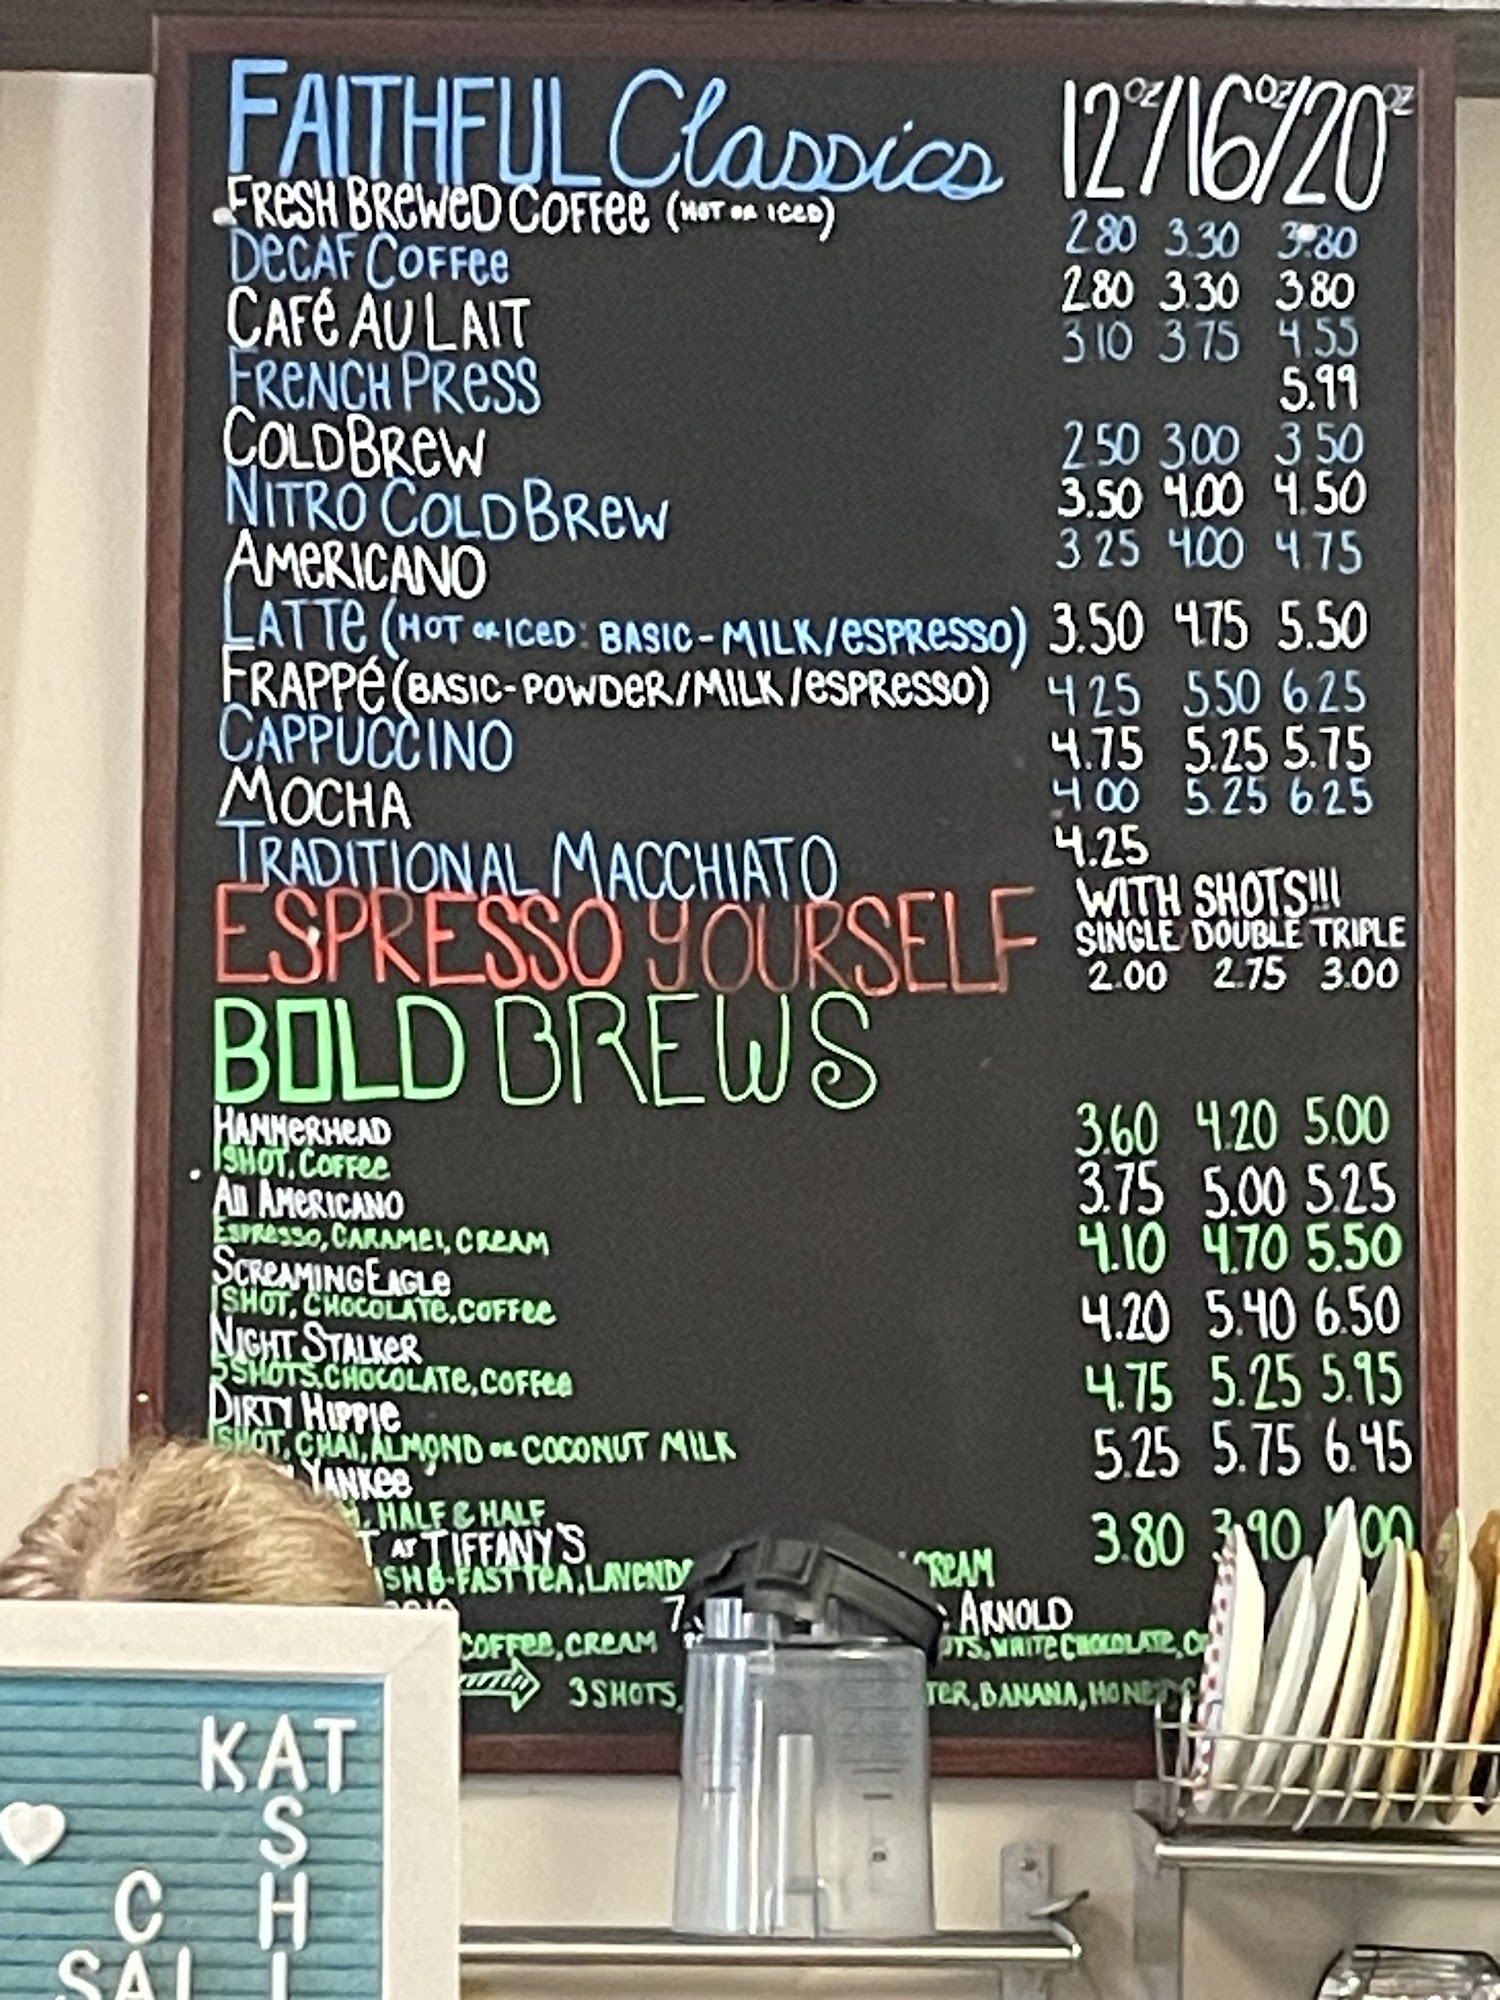 FAITHFUL Classics 12oz/16oz/20oz
FRESH BREWED COFFEE (HOT OR ICED) 2.80 3.30 3.80
DECAF COFFEE 2.80 3.30 3.80
CAFé AU LAIT 3.10 3.75 4.55
FRENCH PRESS 5.99
COLD BREW 2.50 3.00 3.50
NITRO COLD BREW 3.50 4.00 4.50
AMERICANO 3.25 4.00 4.75
LATTE (HOT OR ICED: BASIC-MILK/ESPRESSO) 3.50 4.75 5.50
FRAPPé (BASIC-POWDER/MILK/ESPRESSO) 4.25 5.50 6.25
CAPPUCCINO 4.75 5.25 5.75
MOCHA 4.00 5.25 6.25
TRADITIONAL MACCHIATO 4.25
ESPRESSO YOURSELF WITH SHOTS!!!
SINGLE DOUBLE TRIPLE
2.00 2.75 3.00
BOLD BREWS
HAMMERHEAD 3.60 4.20 5.00
1 SHOT, COFFEE
All AMERICANO 3.75 5.00 5.25
ESPRESSO, CARAMEL, CREAM
SCREAMING EAGLE 4.10 4.70 5.50
1 SHOT, CHOCOLATE, COFFEE
NIGHT STALKER 4.20 5.40 6.50
5 SHOTS, CHOCOLATE, COFFEE
DIRTY HIPPIE 4.75 5.25 5.95
1 SHOT, CHAI, ALMOND OR COCONUT MILK
YANKEE 5.25 5.75 6.45
HALF & HALF
AT TIFFANY'S 3.80 3.90
B-FAST TEA, CREAM
ARNOLD
COFFEE, CREAM WHITE CHOCOLATE,
3 SHOTS, BANANA,
KAT
S
C H